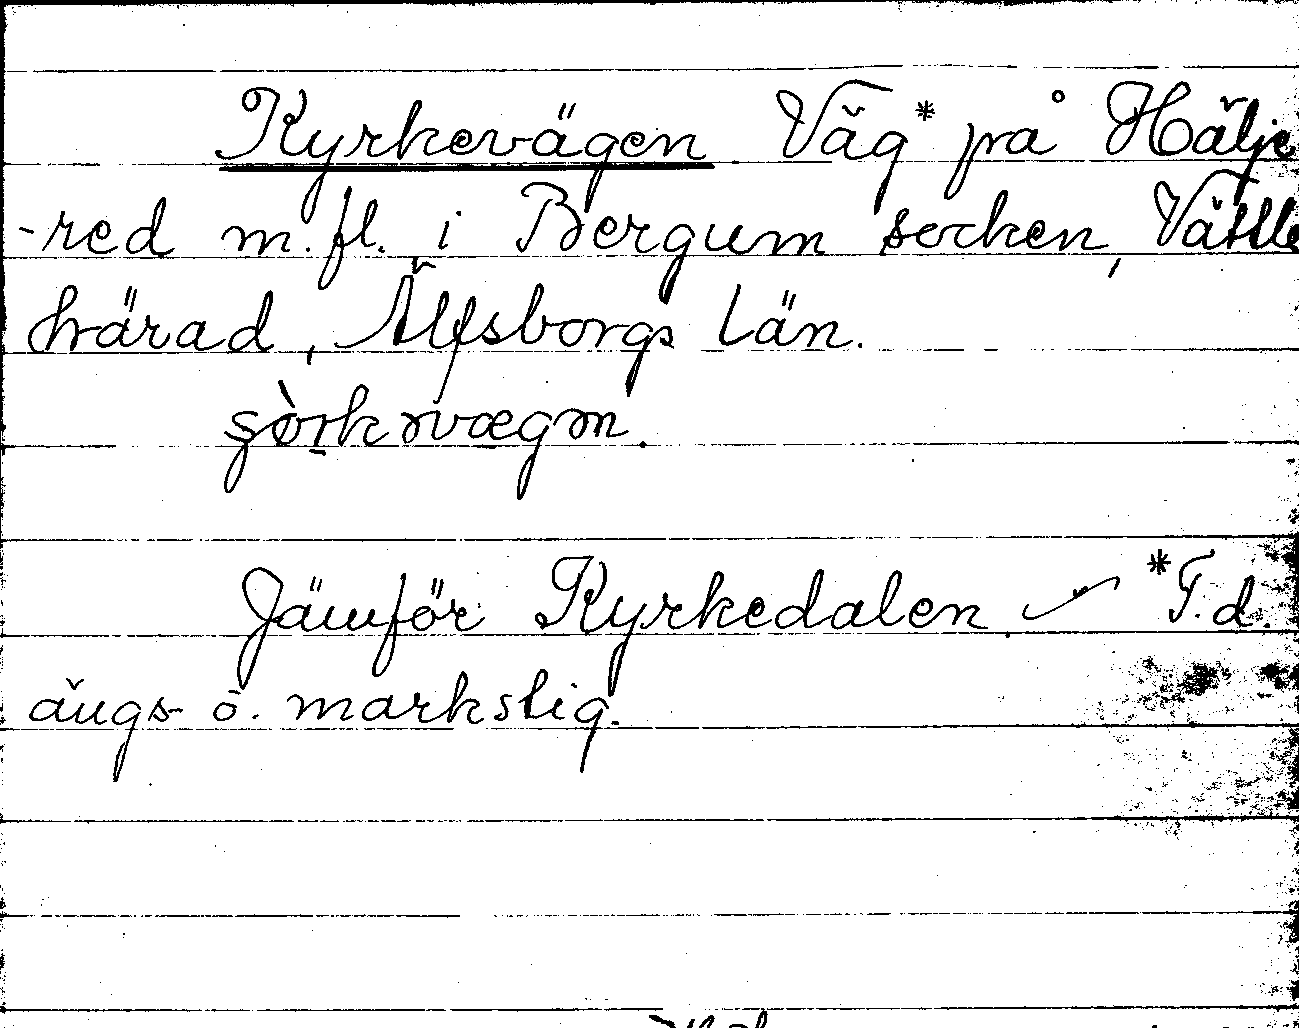 Kyrkevägen Väg* på Hälje
-red m.fl. i Bergum socken, Vättle
härad, Älfsborgs län.
Jämför Kyrkedalen *F.d.
ängs- o. markstig.